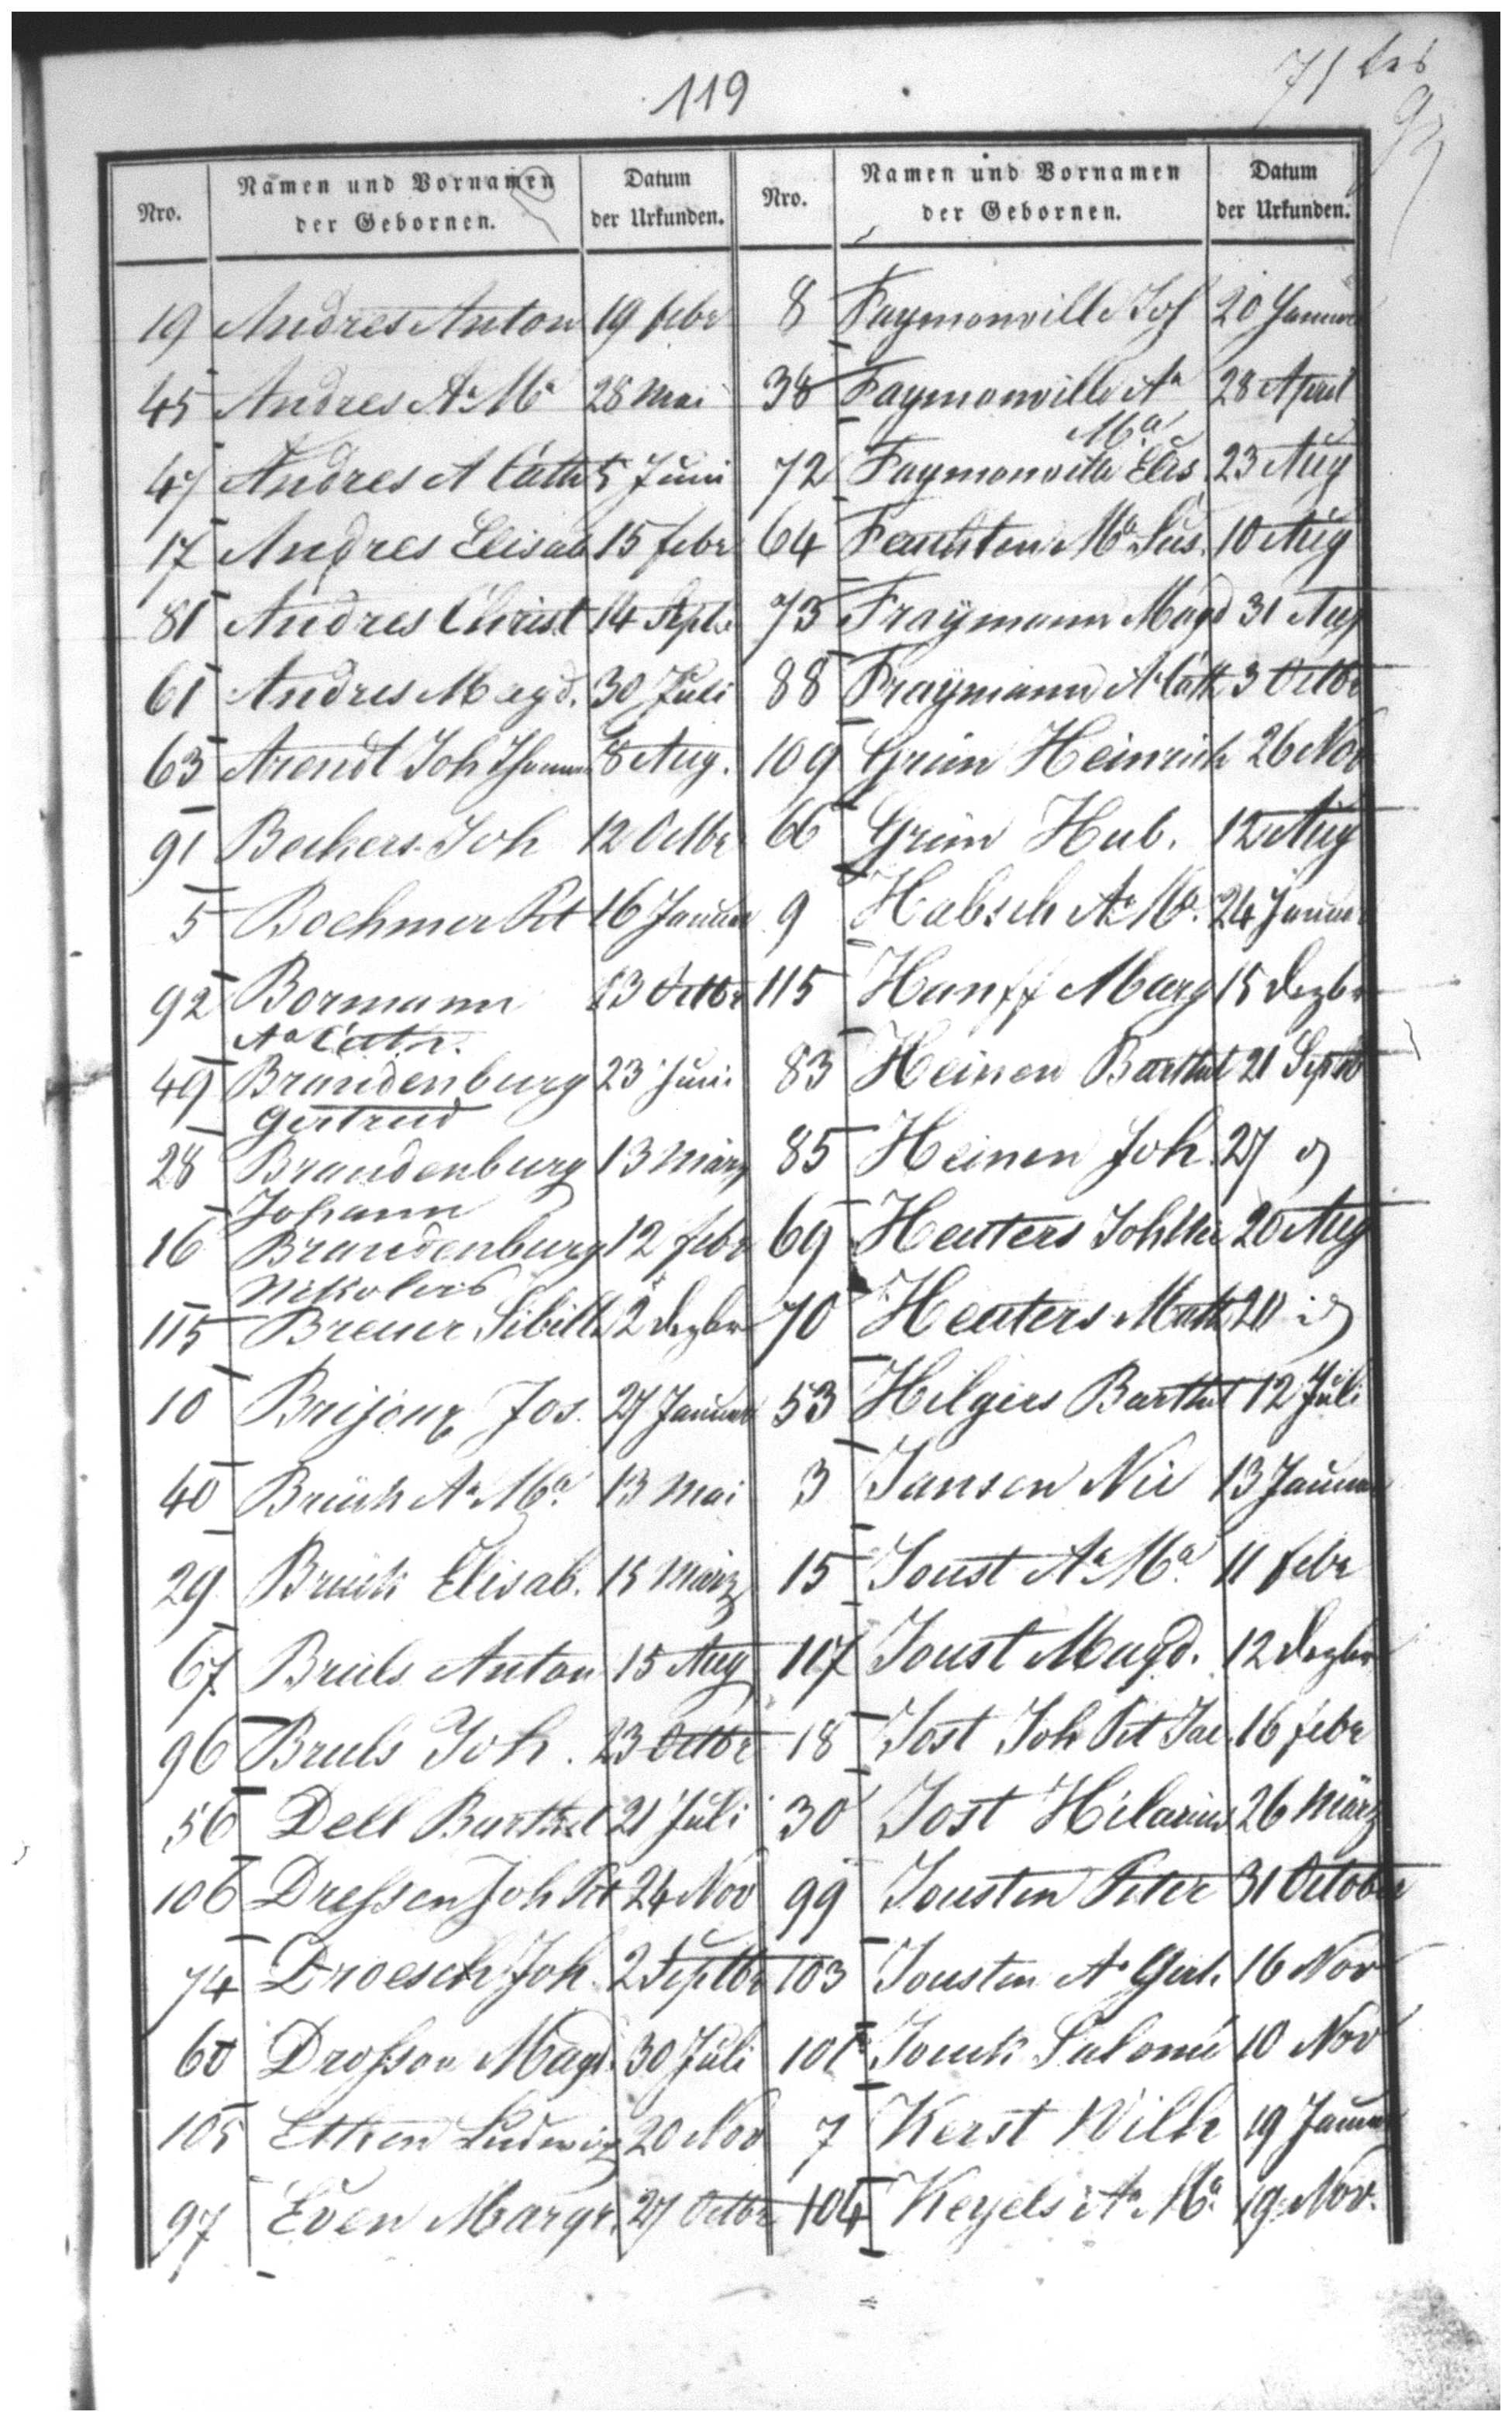 119
71
Nro. Namen und Vornamen der Gebornen. Datum der Urkunden.
19 Andres Anton 19 febr
45 Andres Aª Mª 28 Mai
47 Andres A Cath 5 Juni
17 Andres Elisab 15 febr
81 Andres Christ 14 Septbr
61 Andres Magd. 30 Juli
63 Arendt Joh Thomas 8 Aug.
91 Beckers Joh 12 Octbr
5 Boehmer Pet 16 Januar
92 Bormann 13 Octbr
Aª Cath.
49 Brandenburg 23 Juni
Gertrud
28 Brandenburg 13 März
Johann
16 Brandenburg 12 febr
Nikolas
115 Breuer Sibilla 2 Dezbr
10 Brijoux Jos. 27 Januar
40 Brück Aª Mª 13 Mai
29 Brück Elisab. 15 März
67 Brüls Anton 15 Aug
96 Brüls Joh. 23 Octbr
56 Dell Barthel 21 Juli
106 Dreßsen Joh Pet 24 Nov
74 Droesch Joh. 2 Septbr
60 Droßson Magd. 30 Juli
105 Ethen Ludwig 20 Nov
97 Even Margr. 27 Octbr
Nro. Namen und Vornamen der Gebornen. Datum der Urkunden.
8 Faymonville Jos 20 Januar
38 Faymonville Aª 28 April
Mª
72 Faymonville Elis 23 Aug
64 Mª Sus. 10 Aug
73 Fraymann Magd 31 Aug
88 Fraymann Aª Cath 3 Octbr
109 Grün Heinrich 26 Nov
66 Grün Hub. 12 Aug
9 Habsch Aª Mª 24 Januar
115 Hanff Marg 15 Dezbr
83 Heinen Barthel 21 Septbr
85 Heinen Joh. 27
69 Heuters Joh 20 Aug
70 Heuters Math 20 id
53 Hilgers Barthel 12 Juli
3 Jansen Nic 13 Januar
15 Joust Aª Mª 11 febr
117 Joust Magd. 12 Dezbr
18 Jost Joh Pet Jac. 16 febr
30 Jost Hilarius 26 März
99 Jousten Peter 31 October
103 Jousten Aª Gert. 16 Nov
101 Jouck Salomé 10 Nov
7 Kerst Wilh 19 Januar
104 Keyels Aª Mª 19 Nov.